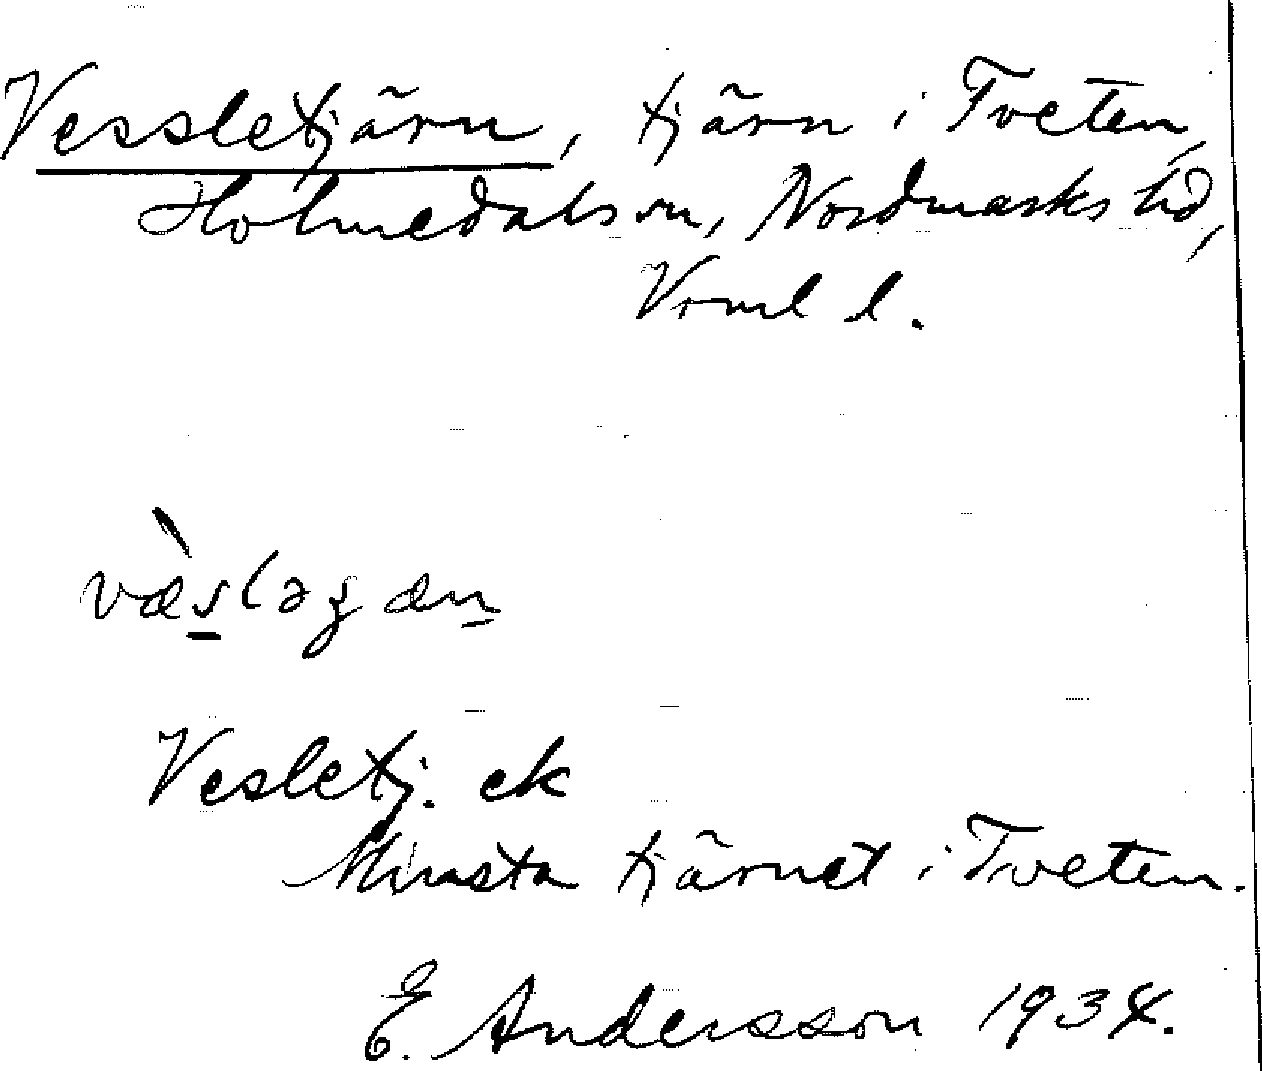 Vessletjärn, tjärn i Tveten,
Holmedals sn, Nordmarks hd,
Vrml l.
væ̀slaʒæn
Vesletj. ek
Minsta tjärnet i Tveten.
E. Andersson 1934.